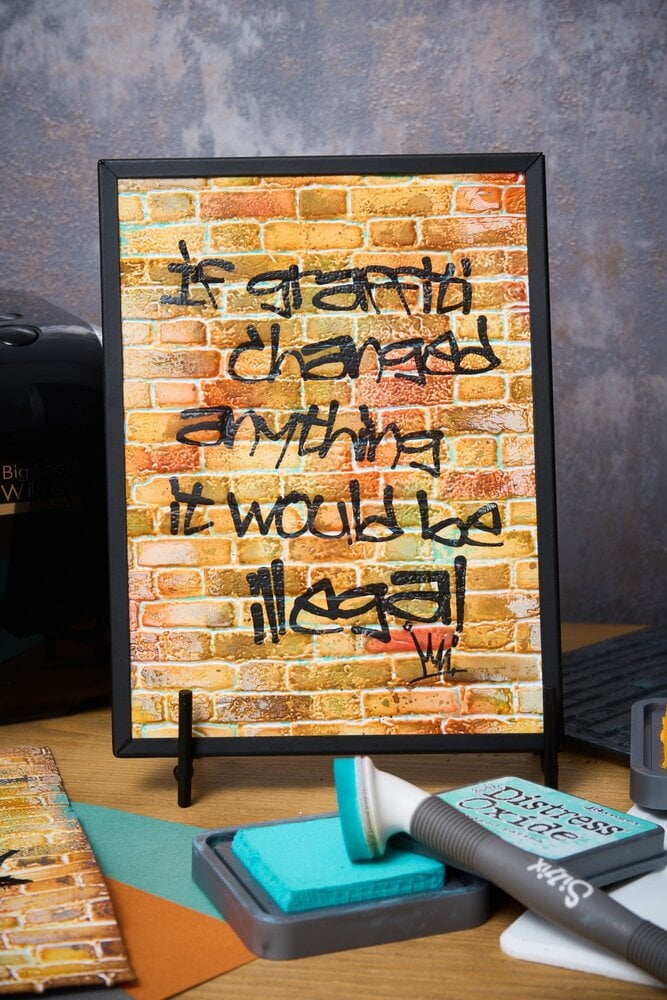 if graffiti
changed
anything
it would be
illegal
Big Shot
Distress
Oxide
Sizzix